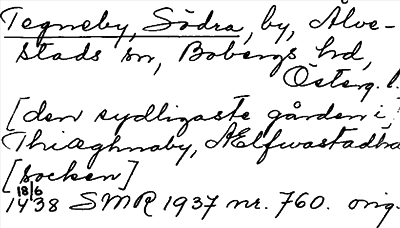 Tegneby, Södra, by, Älve-
stads sn, Bobergs hd,
Österg. l.
[den sydligaste gården i,]
Thiæghnaby, Ælfwastadha
[socken]
18/6
1438 SMR 1937 nr. 760. orig.